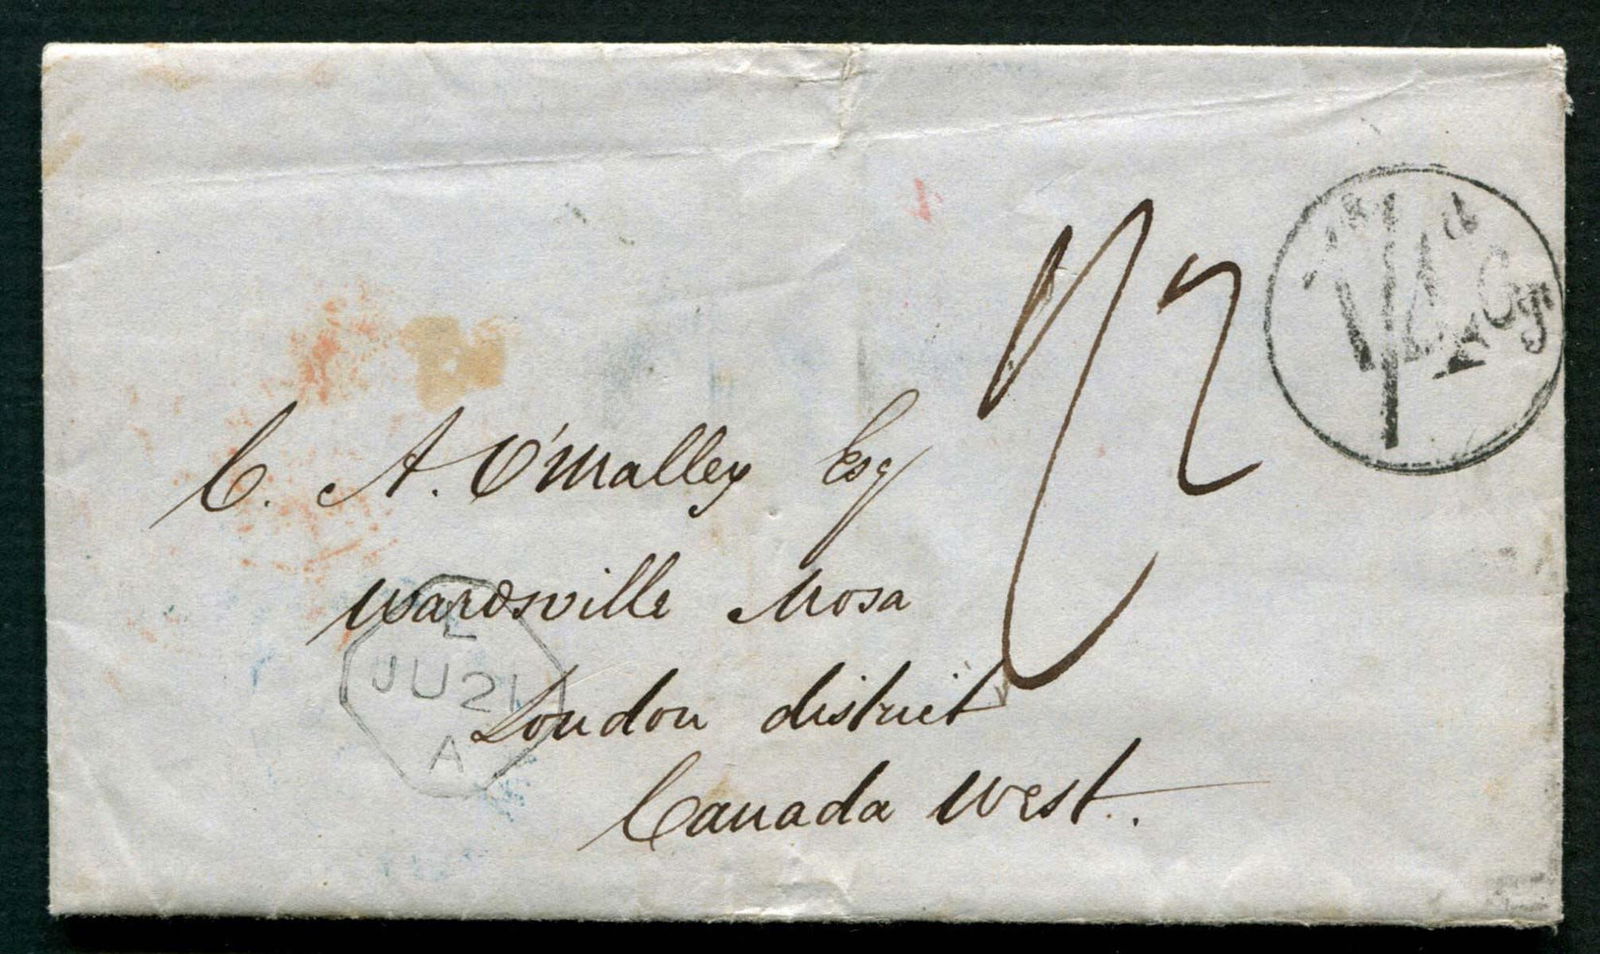 C. A. O'Malley Esq
Wardsville Mosa
London district
Canada West.
L
JU 21
A
1/4
Cy